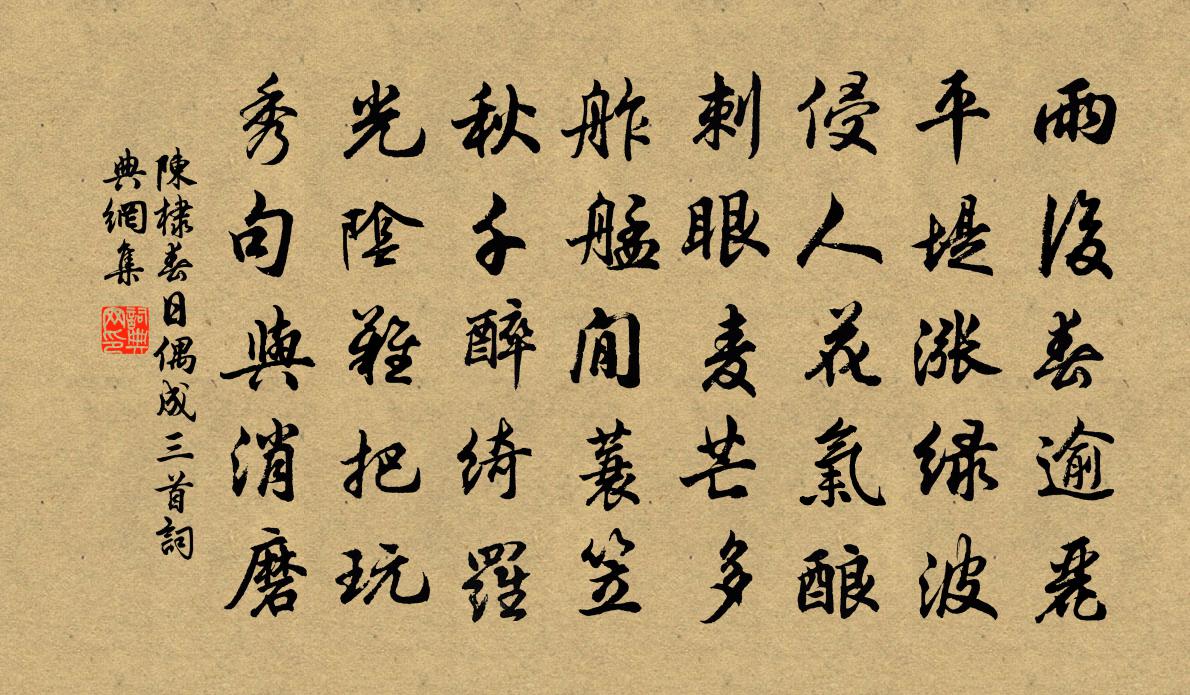 雨後春逾麗
平堤漲緑波
侵人花氣酿
刺眼麦芒多
舴艋間蓑笠
秋千醉綺羅
光陰難把玩
秀句與消磨
陳棣春日偶成三首詞
典網集
詞典
网印